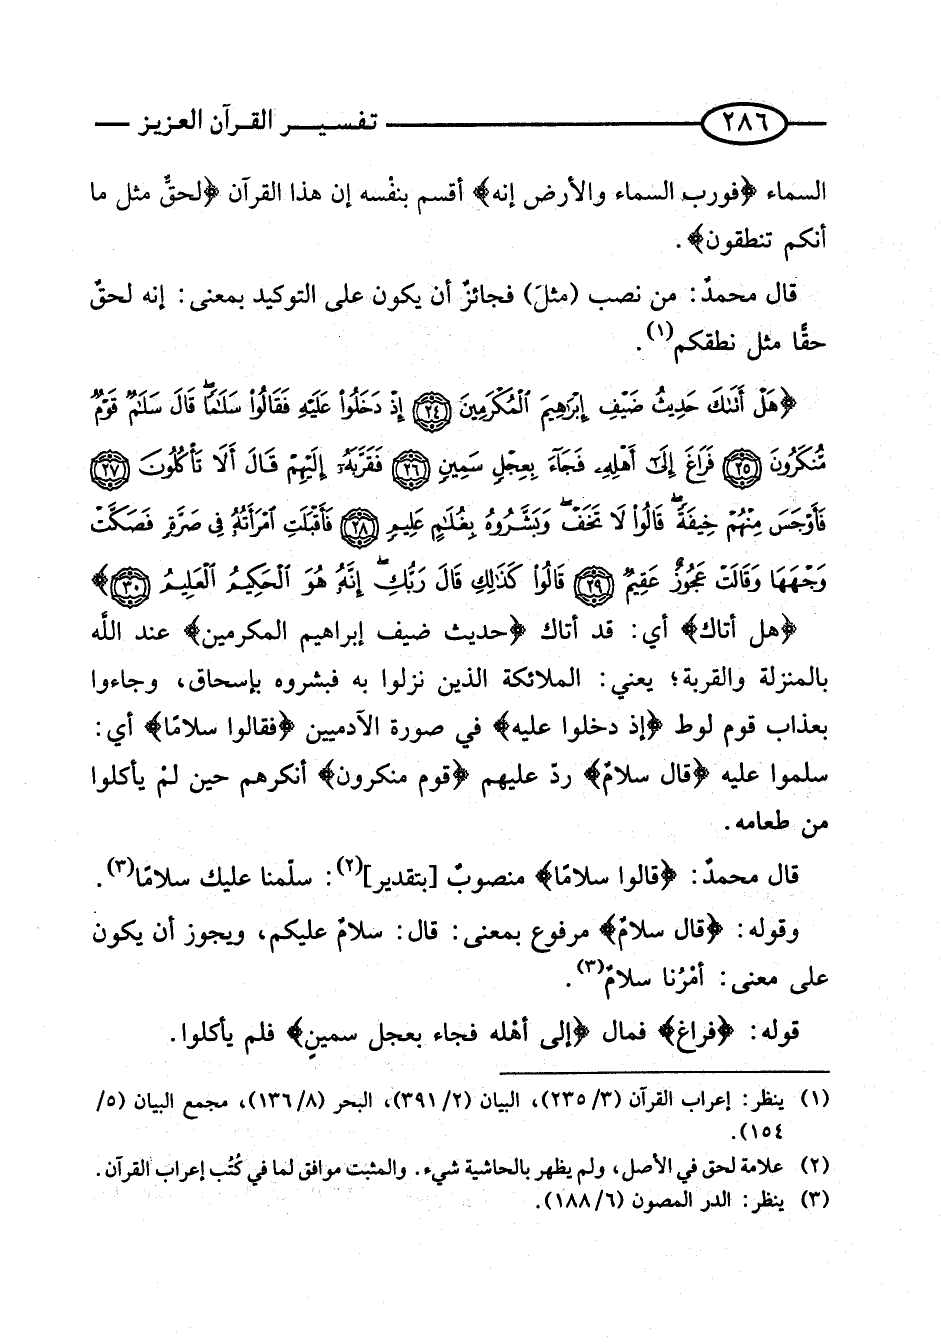 ٢٨٦ تفسير القرآن العزيز
السماء ﴿فورب السماء والأرض إنه﴾ أقسم بنفْسه إن هذا القرآن ﴿لحقٌّ مثل ما
أنكم تنطقون﴾.
قال محمدٌ: من نصب (مثلَ) فجائزٌ أن يكون على التوكيد بمعنى: إنه لحقٌ
حقًّا مثل نطقكم(١).
﴿هَلْ أَتَىٰكَ حَدِيثُ ضَيْفِ إِبْرَٰهِيمَ ٱلْمُكْرَمِينَ ٢٤ إِذْ دَخَلُوا۟ عَلَيْهِ فَقَالُوا۟ سَلَٰمًا ۖ قَالَ سَلَٰمٌ قَوْمٌ
مُّنكَرُونَ ٢٥ فَرَاغَ إِلَىٰٓ أَهْلِهِۦ فَجَآءَ بِعِجْلٍ سَمِينٍ ٢٦ فَقَرَّبَهُۥٓ إِلَيْهِمْ قَالَ أَلَا تَأْكُلُونَ ٢٧
فَأَوْجَسَ مِنْهُمْ خِيفَةً ۖ قَالُوا۟ لَا تَخَفْ ۖ وَبَشَّرُوهُ بِغُلَٰمٍ عَلِيمٍ ٢٨ فَأَقْبَلَتِ ٱمْرَأَتُهُۥ فِى صَرَّةٍ فَصَكَّتْ
وَجْهَهَا وَقَالَتْ عَجُوزٌ عَقِيمٌ ٢٩ قَالُوا۟ كَذَٰلِكِ قَالَ رَبُّكِ ۖ إِنَّهُۥ هُوَ ٱلْحَكِيمُ ٱلْعَلِيمُ ٣٠﴾
﴿هل أتاك﴾ أي: قد أتاك ﴿حديث ضيف إبراهيم المكرمين﴾ عند اللَّه
بالمنزلة والقربة؛ يعني: الملائكة الذين نزلوا به فبشروه بإسحاق، وجاءوا
بعذاب قوم لوط ﴿إذ دخلوا عليه﴾ في صورة الآدميين ﴿فقالوا سلامًا﴾ أي:
سلموا عليه ﴿قال سلامٌ﴾ ردّ عليهم ﴿قوم منكرون﴾ أنكرهم حين لمْ يأكلوا
من طعامه.
قال محمدٌ: ﴿قالوا سلامًا﴾ منصوبٌ [بتقدير](٢): سلّمنا عليك سلامًا(٣).
وقوله: ﴿قال سلامٌ﴾ مرفوع بمعنى: قال: سلامٌ عليكم، ويجوز أن يكون
على معنى: أمْرُنا سلامٌ(٣).
قوله: ﴿فراغ﴾ فمال ﴿إلى أهْله فجاء بعجل سمينٍ﴾ فلم يأكلوا.
(١) ينظر: إعراب القرآن (٣/ ٢٣٥)، البيان (٢/ ٣٩١)، البحر (٨/ ١٣٦)، مجمع البيان (٥/
١٥٤).
(٢) علامة لحق في الأصل، ولم يظهر بالحاشية شيء. والمثبت موافق لما في كُتُب إعراب القرآن.
(٣) ينظر: الدر المصون (٦/ ١٨٨).